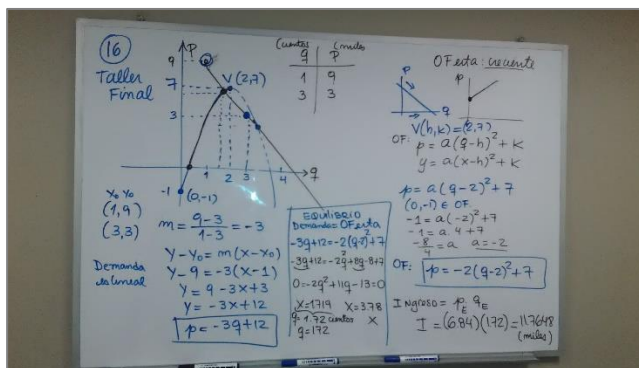 16
Taller
Final
P
9
7
3
-1
V(2,7)
(0,-1)
1 2 3 4 q
Cientos q | (miles P
1 | 9
3 | 3
x₀ y₀
(1,9)
(3,3)
Demanda
es lineal
m = 9-3/1-3 = -3
y-y₀ = m(x-x₀)
y-9 = -3(x-1)
y = 9-3x+3
y = -3x+12
p = -3q+12
EQUILIBRIO
Demanda = Oferta
-3q+12 = -2(q-2)²+7
-3q+12 = -2q²+8q-8+7
0 = -2q²+11q-13=0
X=1.719 X=3.78
q=1.72 cientos X
q=172
OFerta: creciente
P
q
P
V(h,k)=(2,7)
OF: p = a(q-h)²+k
y = a(x-h)²+k
p = a(q-2)²+7
(0,-1) ∈ OF
-1 = a(-2)²+7
-1 = a·4+7
-8/4 = a a=-2
OF: p = -2(q-2)²+7
Ingreso = p_E q_E
I = (6.84)(172) = 1176.48
(miles)